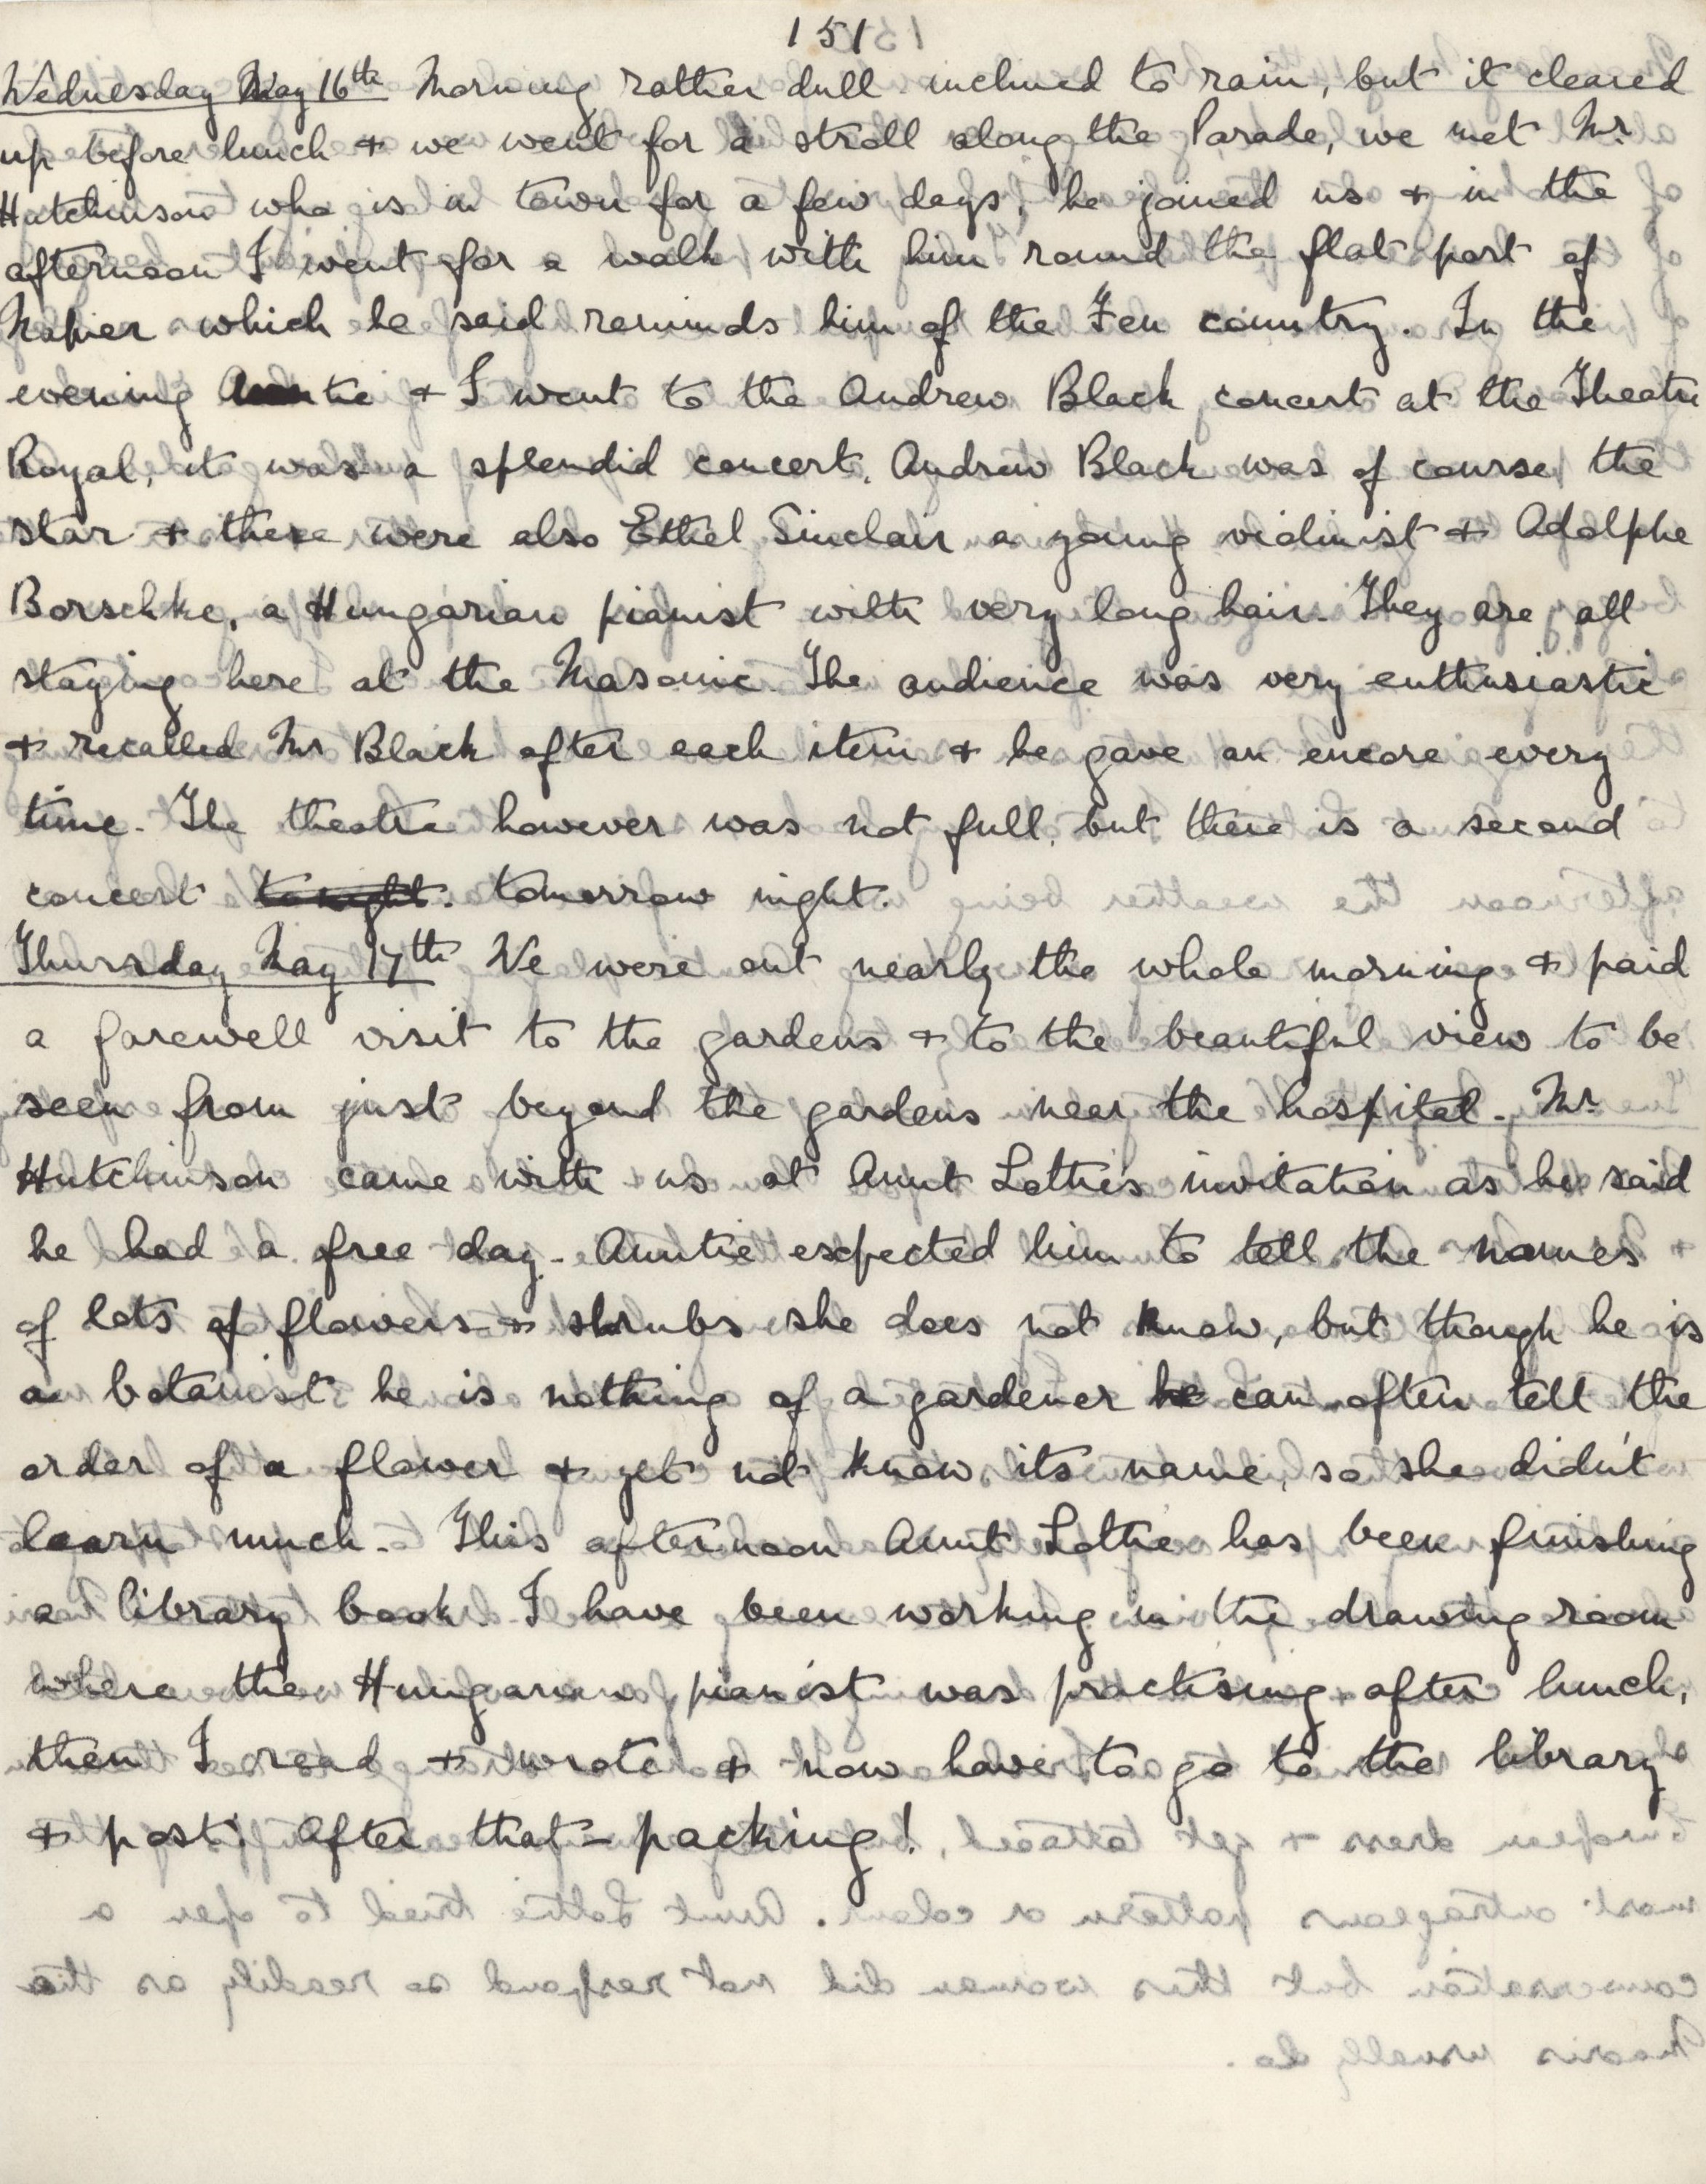 151
Wednesday May 16th Morning rather dull inclined to rain, but it cleared
up before lunch + we went for a stroll along the Parade, we met Mr
Hutchinson who is in town for a few days, he joined us + in the
afternoon I went for a walk with him round the flat part of
Napier which he said reminds him of the Fen country. In the
evening Auntie + I went to the Andrew Black concert at the Theatre
Royal, it was a splendid concert. Andrew Black was of course the
star + there were also Ethel Sinclair a young violinist + Adolphe
Borschke, a Hungarian pianist with very long hair. They are all
staying here at the Masonic. The audience was very enthusiastic
+ recalled Mr Black after each item + he gave an encore every
time. The theatre however was not full, but there is a second
concert tonight. tomorrow night.
Thursday May 17th We were out nearly the whole morning + paid
a farewell visit to the gardens + to the beautiful view to be
seen from just beyond the gardens near the hospital. Mr
Hutchinson came with us at Aunt Lottie's invitation as he said
he had a free day. Auntie expected him to tell the names
of lots of flowers + shrubs she does not know, but though he is
a botanist he is nothing of a gardener he can often tell the
order of a flower + yet not know its name, so she didn't
learn much. This afternoon Aunt Lottie has been finishing
a library book. I have been working in the drawing room
where the Hungarian pianist was practising after lunch,
then I read + wrote + now have to go to the library
+ post. After that – packing!